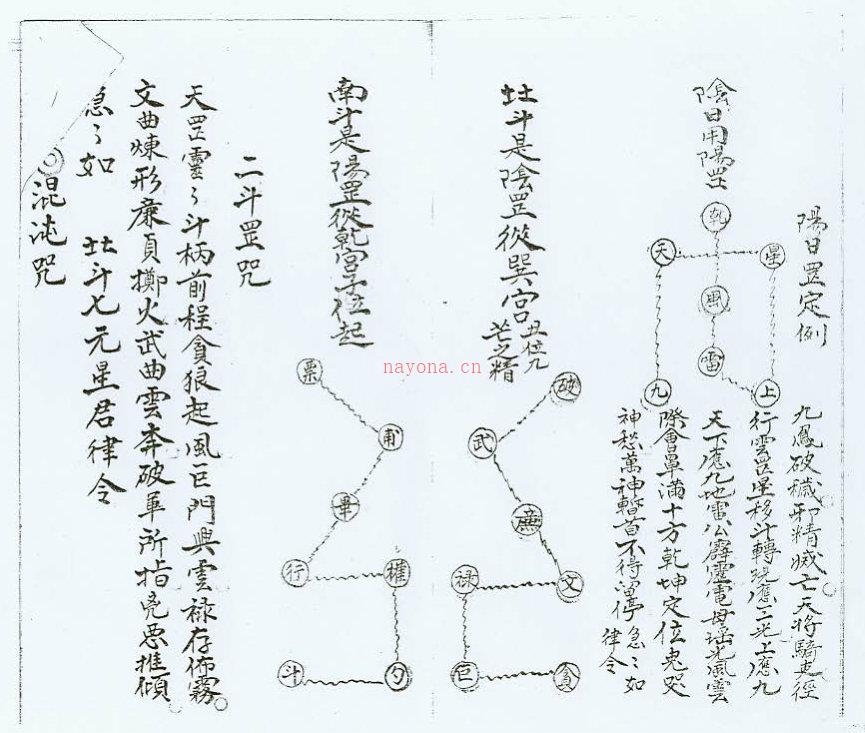 陽日罡定例
九鳳破穢邪精滅亡天将騎吏徑
行雲罡星移斗轉現應三光上應九
天下應九地雷公霹靂電母瑶光風雲
際會罩滿十方乾坤定位鬼哭
神愁萬神暫首不得留停急〻如
律令
陰日用陽罡
乾
天 星
風
雷
九 上
北斗是陰罡從巽宮丑位九
芒之精
破
武
廉
禄 文
巨 貪
南斗是陽罡從乾宮子位起
票
甫
畢
行 權
斗 勺
二斗罡咒
天罡靈〻斗柄前程貪狼起風巨門興雲禄存佈霧
文曲煉形廉貞擲火武曲雲奔破軍所指凶惡推傾
急〻如 北斗七元星君律令
混沌咒
nayona.cn